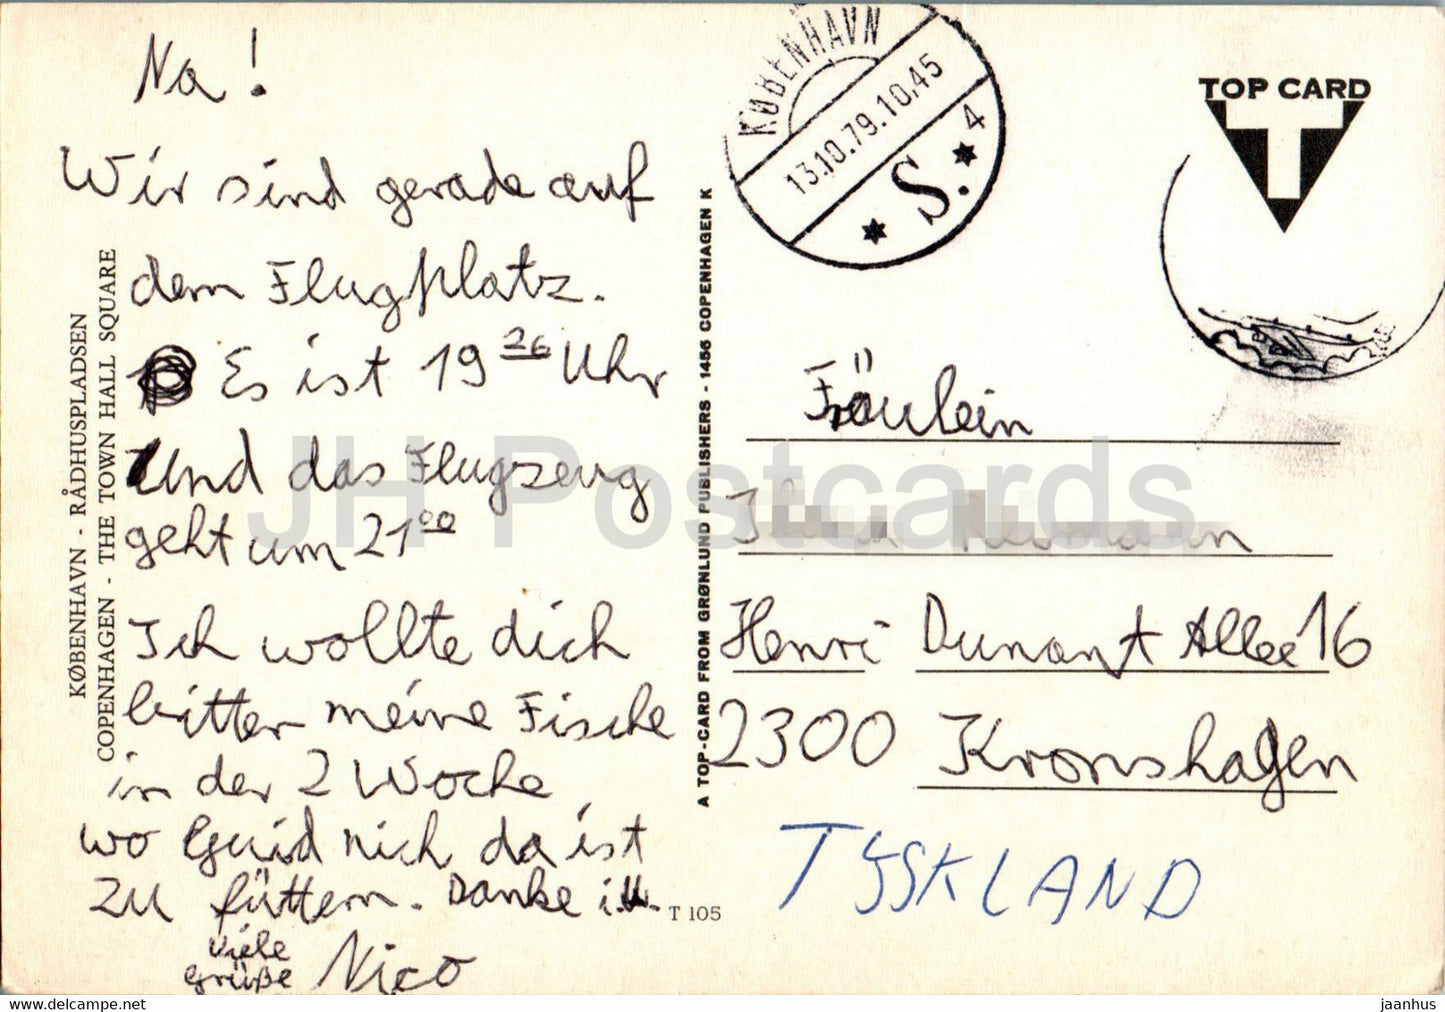 Na!
Wir sind gerade auf
dem Flugplatz.
Es ist 19 26 Uhr
Und das Flugzeug
geht um 21 00
Ich wollte dich
bitten meine Fische
in der 2 Woche
wo Guid nich da ist
zu füttern. Danke
Viele
Grüße Nico
KØBENHAVN - RÅDHUSPLADSEN
COPENHAGEN - THE TOWN HALL SQUARE
A TOP-CARD FROM GRØNLUND PUBLISHERS - 1456 COPENHAGEN K
T 105
KØBENHAVN
13.10.79.10.45
* S. * 4
TOP CARD
T
Fräulein
Henri Dunant Allee 16
2300 Kronshagen
TYSKLAND
JH Postcards
https://www.delcampe.net
jaanhus